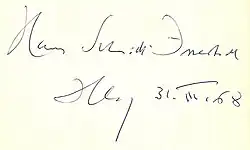 Hans Schmidt-Isserstedt
31. III. 68